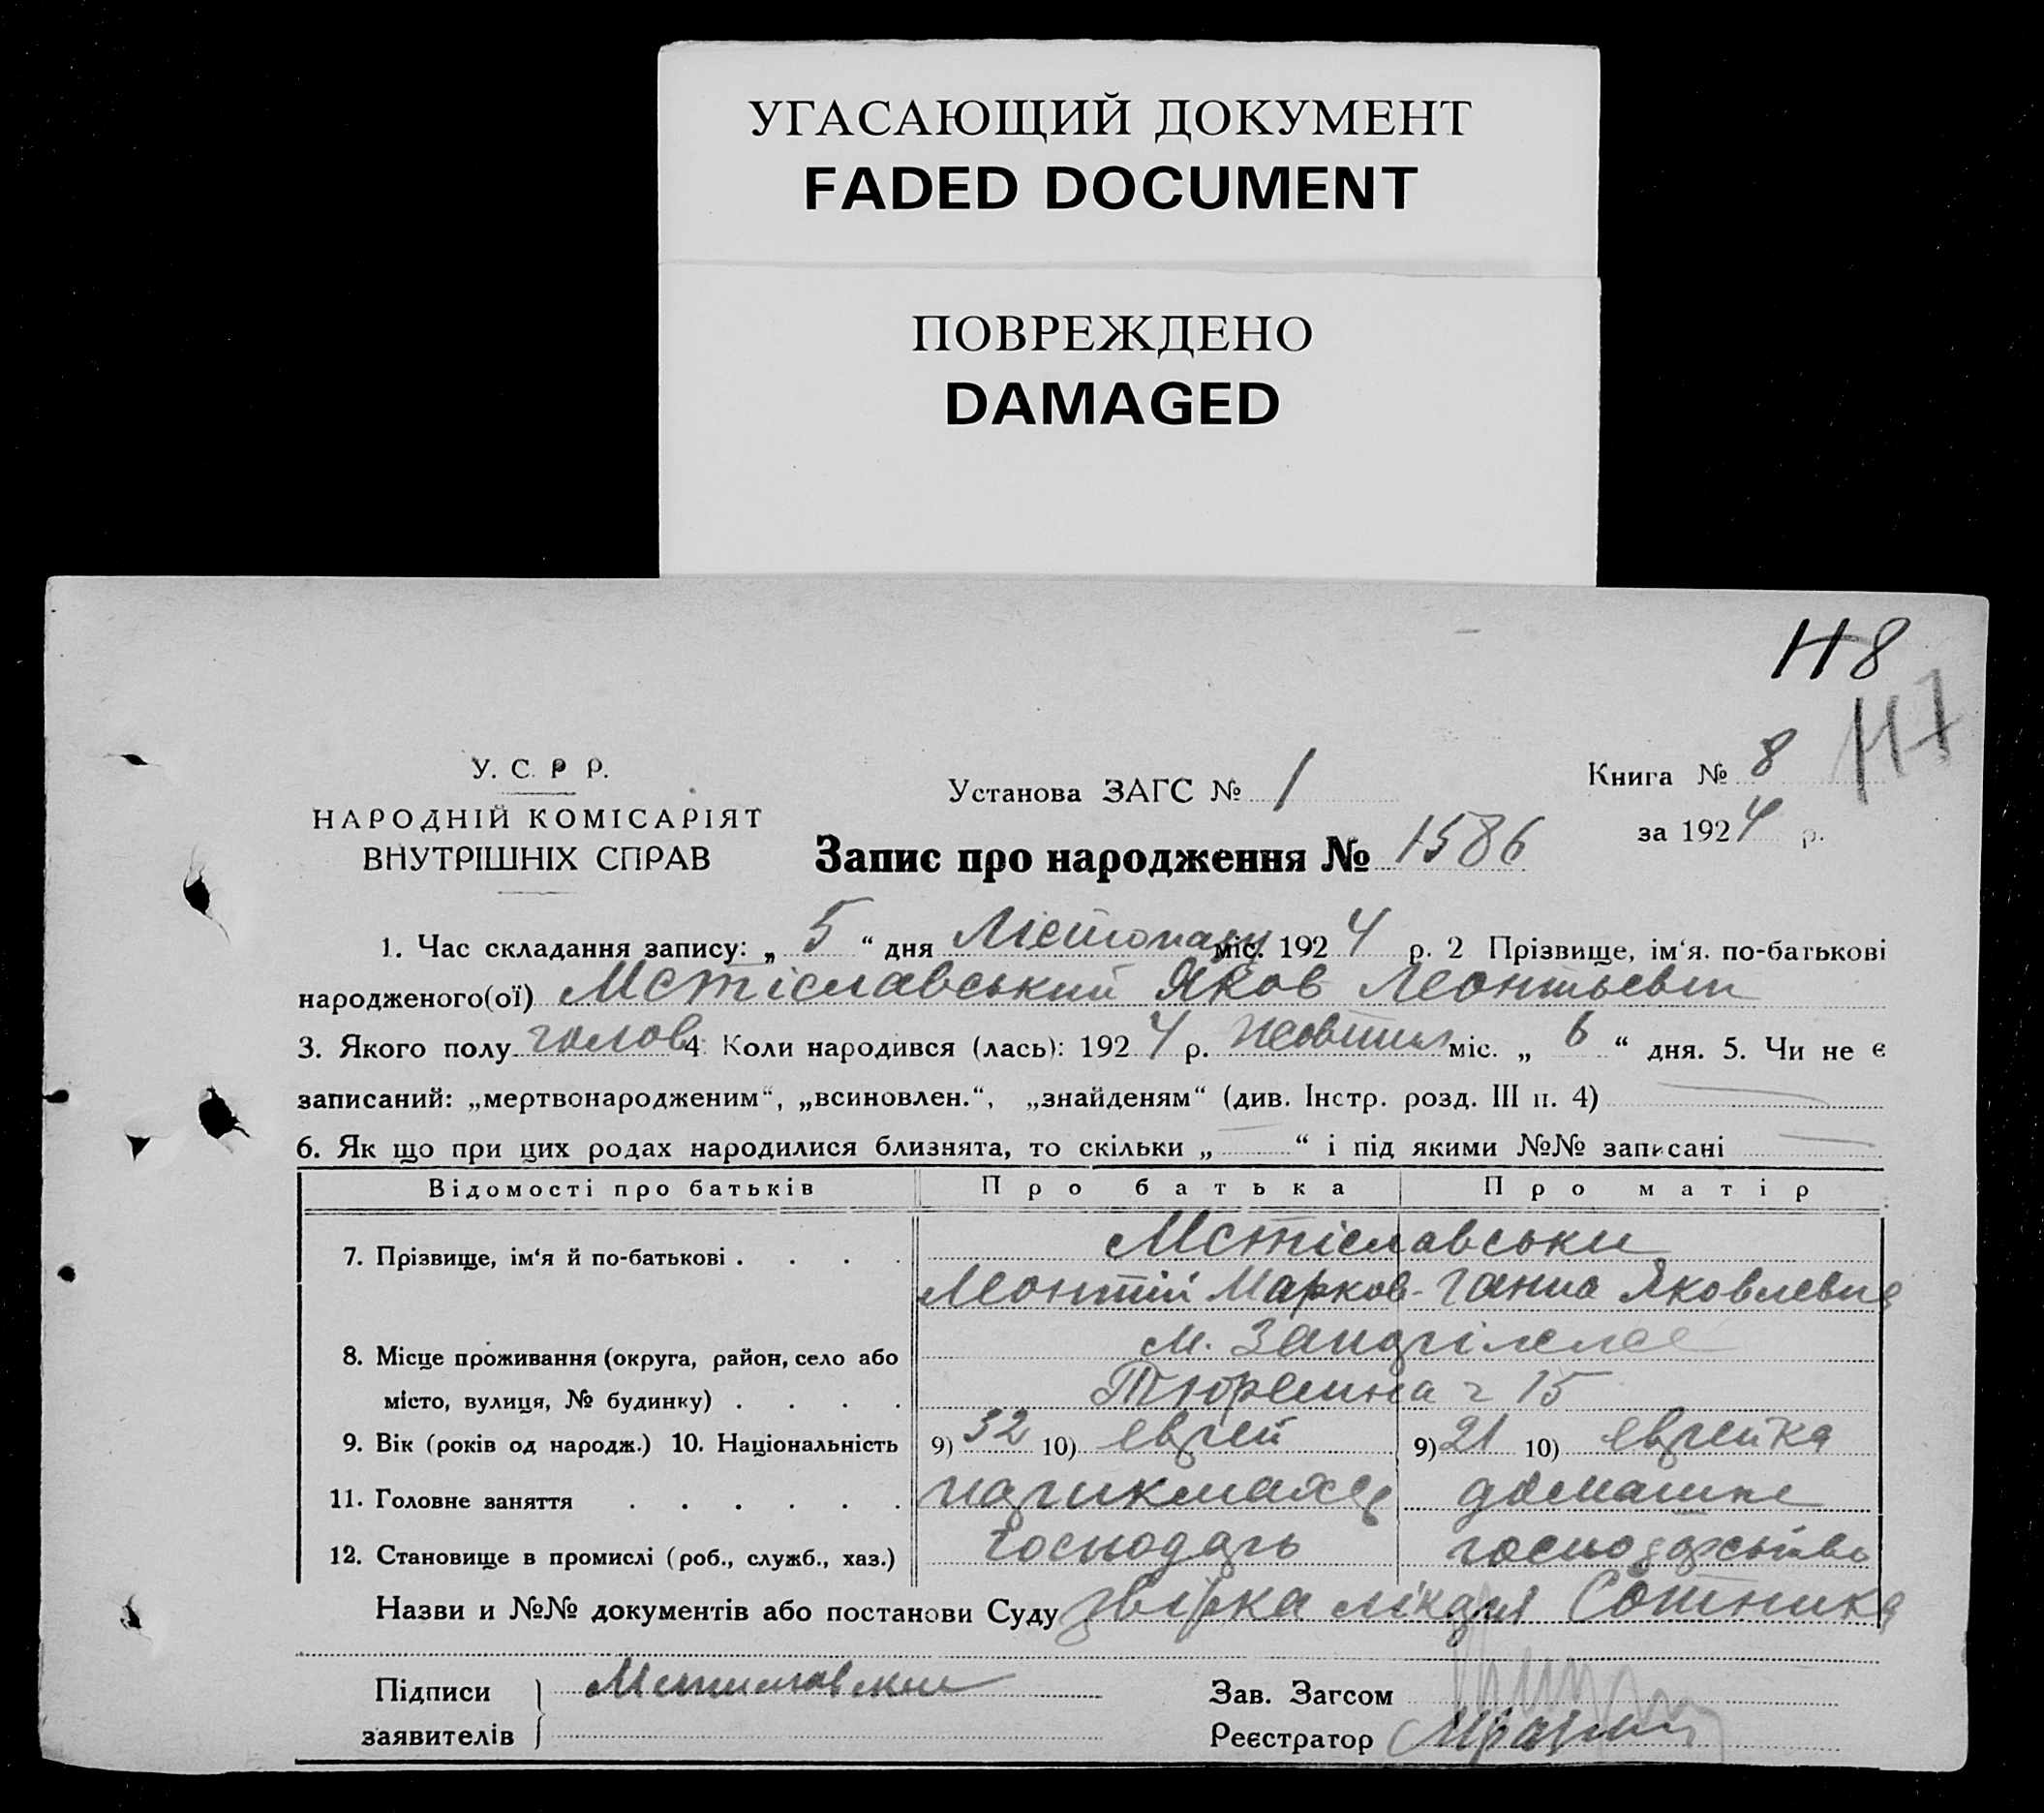 УГАСАЮЩИЙ ДОКУМЕНТ
FADED DOCUMENT
ПОВРЕЖДЕНО
DAMAGED
118
117
У. С. Р Р.
НАРОДНІЙ КОМІСАРІЯТ
ВНУТРІШНІХ СПРАВ
Установа ЗАГС № 1
Книга № 8
за 1924 р.
Запис про народження № 1586
1. Час складання запису: „ 5 “ дня Лістопаду міс. 1924 р. 2 Прізвище, ім‘я. по-батькові
народженого(ої) Мстіславський Яков Леонтьевич
3. Якого полу голов 4. Коли народився (лась): 1924 р. Жовтня міс. „ 6 “ дня. 5. Чи не є
записаний: „мертвонародженим“, „всиновлен.“, „знайденям“ (див. Інстр. розд. III п. 4)
6. Як що при цих родах народилися близнята, то скільки „ “ і під якими №№ записані
Відомості про батьків Про батька Про матір
7. Прізвище, ім‘я й по-батькові . . . . Мстіславськи
Леонтій Марков- Ганна Яковлевна
8. Місце проживання (округа, район, село або м.
місто, вулиця, № будинку) . . . . 15
9. Вік (років од народж.) 10. Національність 9) 32 10) еврей 9) 21 10) еврейка
11. Головне заняття . . . . . . парикмахер домашне
12. Становище в промислі (роб., служб., хаз.) господарь господарство
Назви и №№ документів або постанови Суду лікаря Сотника
Підписи Зав. Загсом
заявителів Реєстратор